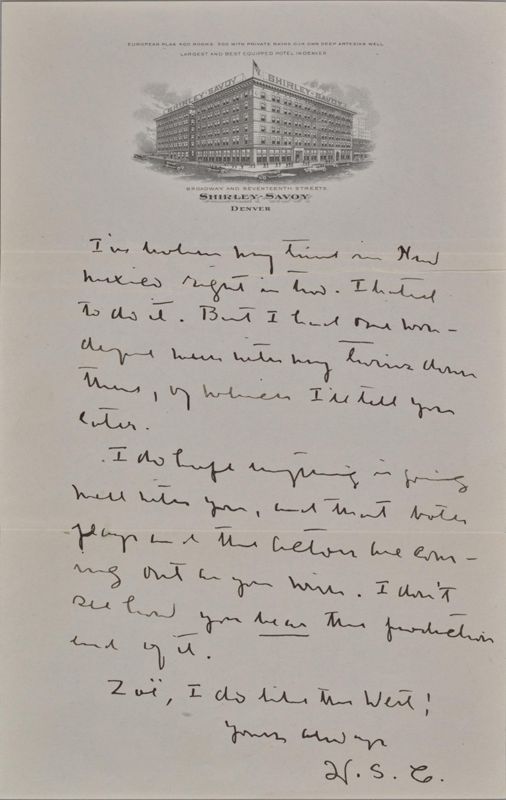 EUROPEAN PLAN 400 ROOMS 300 WITH PRIVATE BATHS OUR OWN DEEP ARTESIAN WELL
LARGEST AND BEST EQUIPPED HOTEL IN DENVER
SHIRLEY-SAVOY SHIRLEY-SAVOY
BROADWAY AND SEVENTEENTH STREETS
SHIRLEY-SAVOY
DENVER
I've broken my time in New
Mexico right in two. I hated
to do it. But I had one won-
derful week with my down
there, of which I'll tell you
later.
I do hope everything is going
well with you, and that both
plays and the actors are com-
ing out as you wish. I don't
see how you bear the production
end of it.
Zoë, I do like the West!
Yours always
W. S. C.